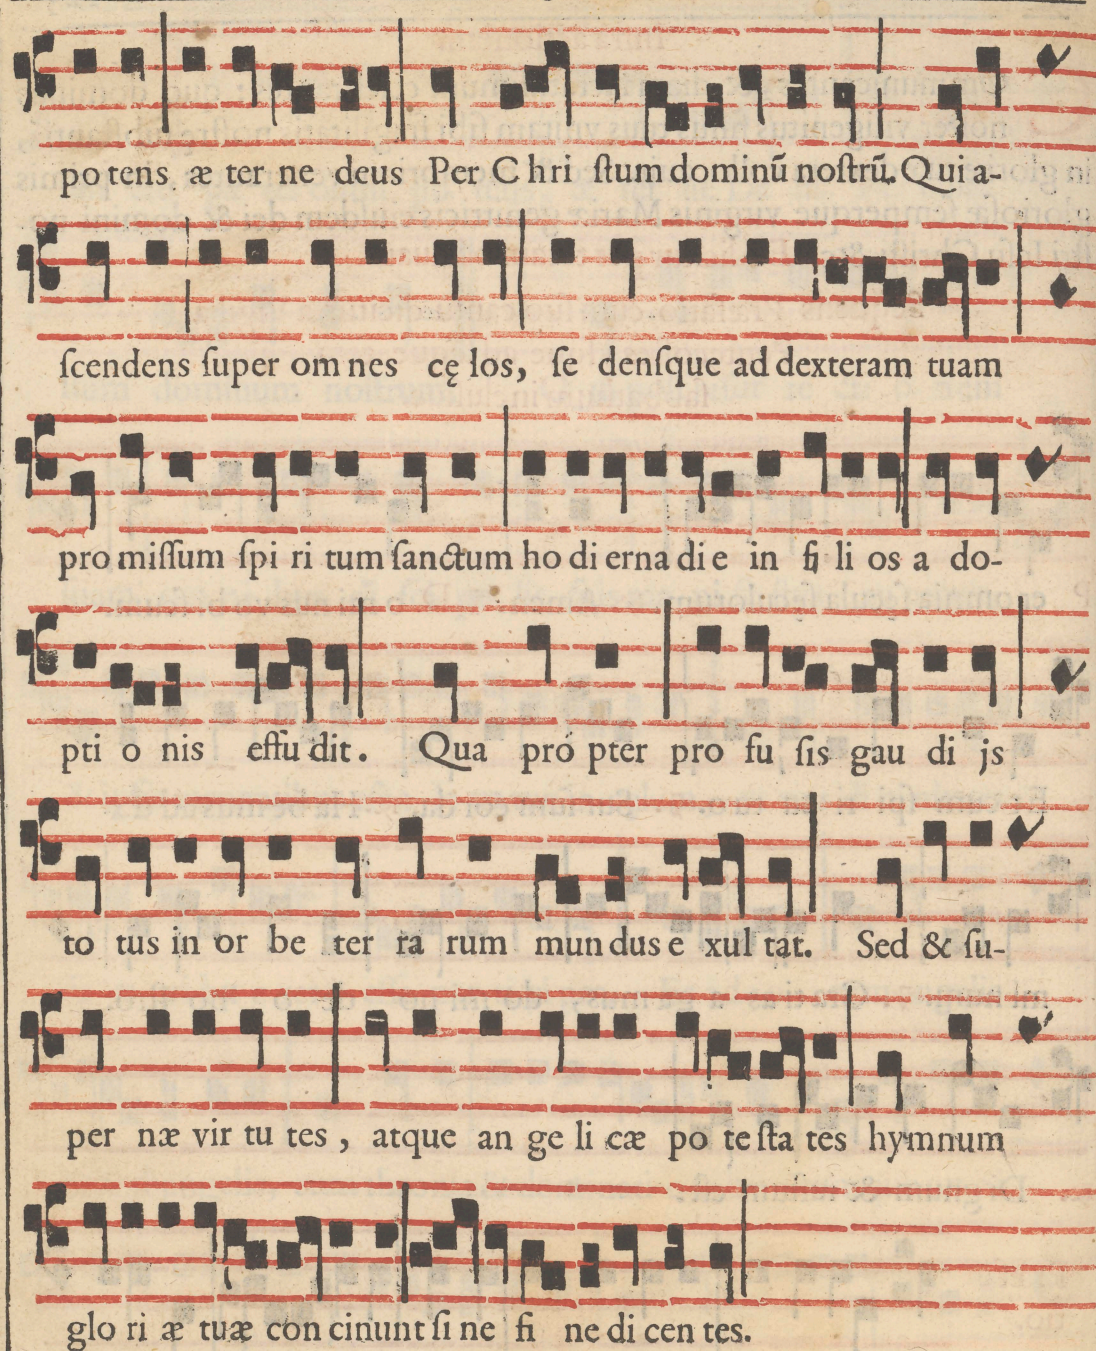 potens æ ter ne deus Per Chri ſtum dominū noſtrū. Qui a-
ſcendens ſuper om nes cę los, ſe denſque ad dexteram tuam
pro miſſum ſpi ri tum ſanctum ho di erna di e in fi li os a do-
pti o nis effu dit. Qua pró pter pro fu ſis gau di js
to tus in or be ter ra rum mun dus e xul tat. Sed & ſu-
per næ vir tu tes, atque an ge li cæ po te ſta tes hymnum
glo ri æ tuæ con cinunt ſi ne fi ne di cen tes.